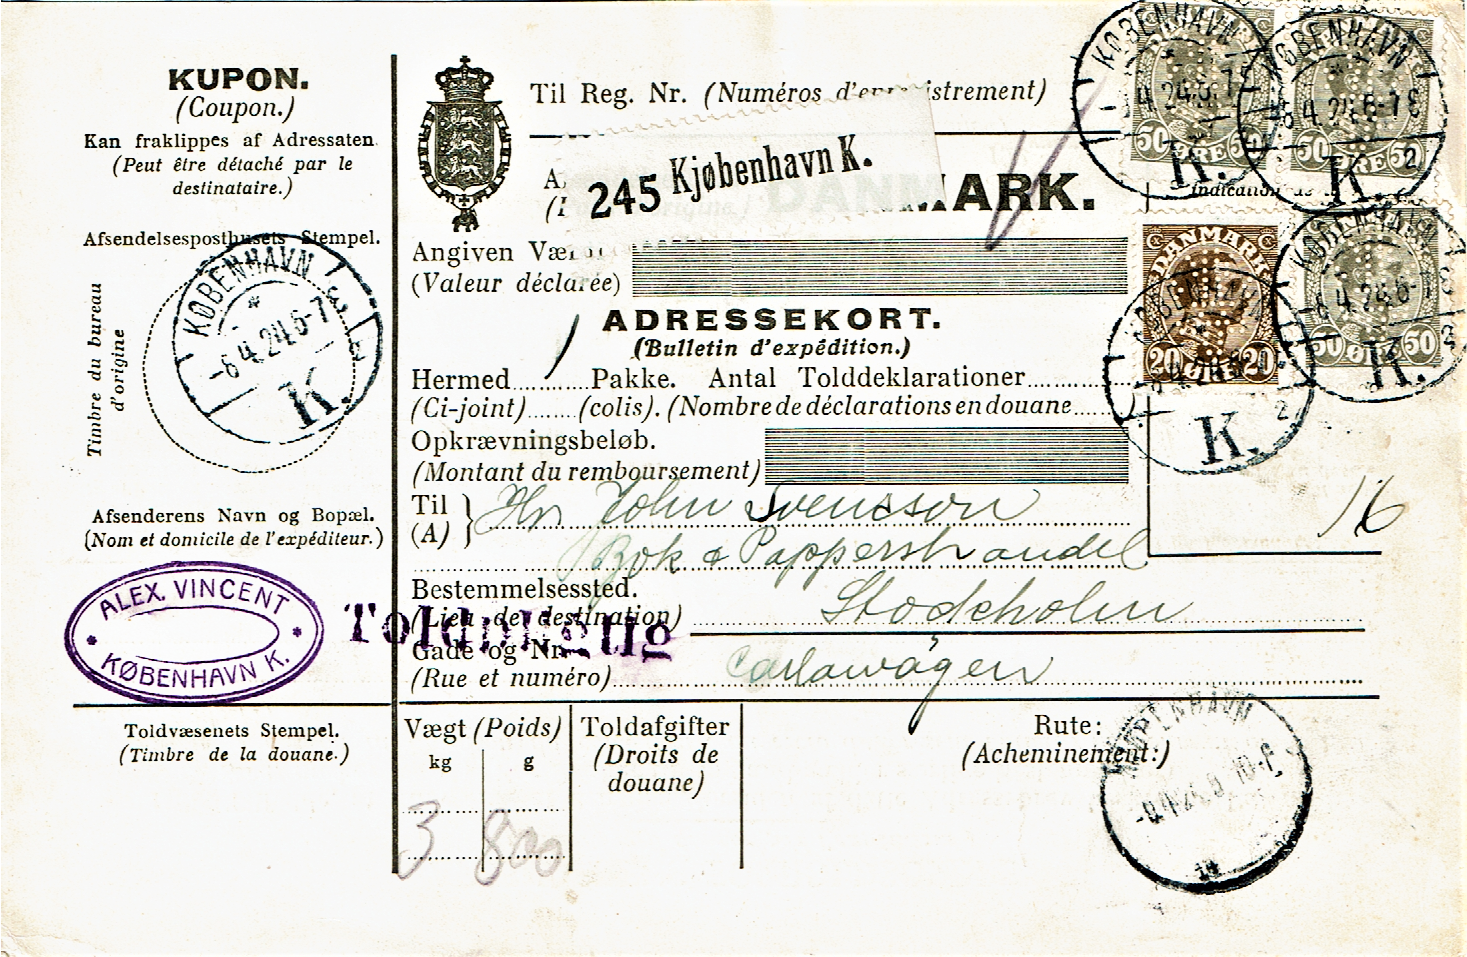 KUPON.
(Coupon.)
Kan fraklippes af Adressaten.
(Peut être détaché par le
destinataire.)
Afsendelsesposthusets Stempel.
Timbre du bureau
d'origine
KØBENHAVN
-6.4.24.6-7E
K.
Afsenderens Navn og Bopæl.
(Nom et domicile de l'expéditeur.)
ALEX. VINCENT
* *
KØBENHAVN K.
Toldvæsenets Stempel.
(Timbre de la douane.)
Til Reg. Nr. (Numéros d'enregistrement)
245 Kjøbenhavn K.
DANMARK.
Angiven Vær
(Valeur déclarée)
ADRESSEKORT.
(Bulletin d'expédition.)
Hermed 1 Pakke. Antal Tolddeklarationer
(Ci-joint) (colis). (Nombre de déclarations en douane
Opkrævningsbeløb.
(Montant du remboursement)
Til
(A)
Hr John Svensson
Bok & Pappershandel
Bestemmelsessted.
(Lieu de destination)
Stockholm
Toldpligtig
Gade og Nr.
(Rue et numéro)
Carlavägen
Vægt (Poids)
kg g
3 800
Toldafgifter
(Droits de
douane)
Rute:
(Acheminement:)
KØBENHAVN
KØBENHAVN
K.
50 ØRE 50
KØBENHAVN
4.24.6-7E
K.
2
50 ØRE 50
indication de
DANMARK
20 ØRE 20
KØBENHAVN
K.
2
KØBENHAVN
K.
50 ØRE 50
16